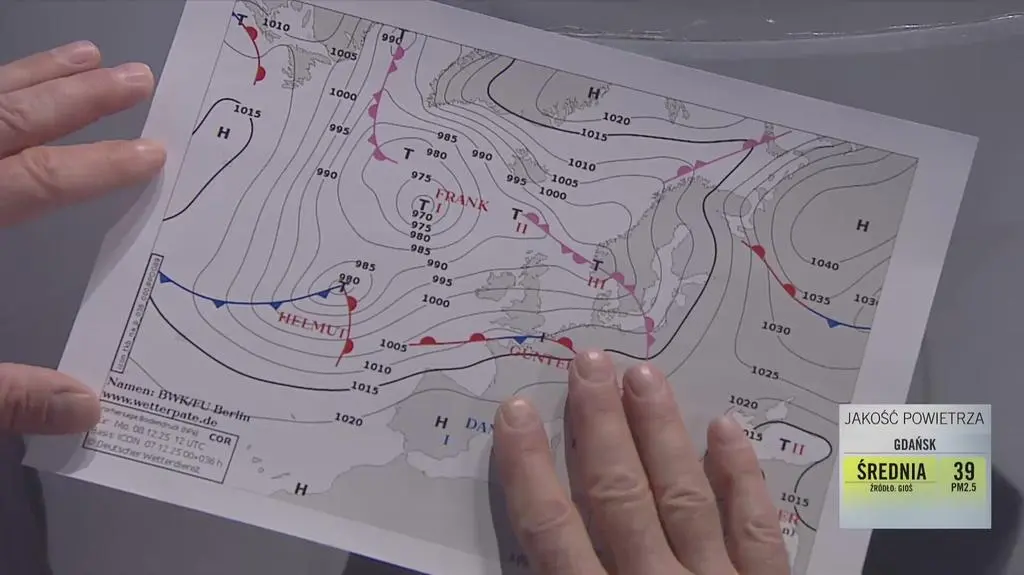 1010
1005
990
1000
995
990
1015
H
985
980
990
975
T
T I
FRANK
970
975
980
985
990
995
1000
995
1000
1005
1010
1015
1020
H
T
T
II
T
III
H
1040
1035
1030
1025
1020
985
980
HELMUT
1005
1010
1015
1020
GÜNTER
H
I
T II
1015
H
Namen: BWK/FU Berlin
www.wetterpate.de
COR
Mo. 08.12.25 12 UTC
ICON 07.12.25 00+036 h
© Deutscher Wetterdienst
JAKOŚĆ POWIETRZA
GDAŃSK
ŚREDNIA 39
ŹRÓDŁO: GIOŚ PM2.5